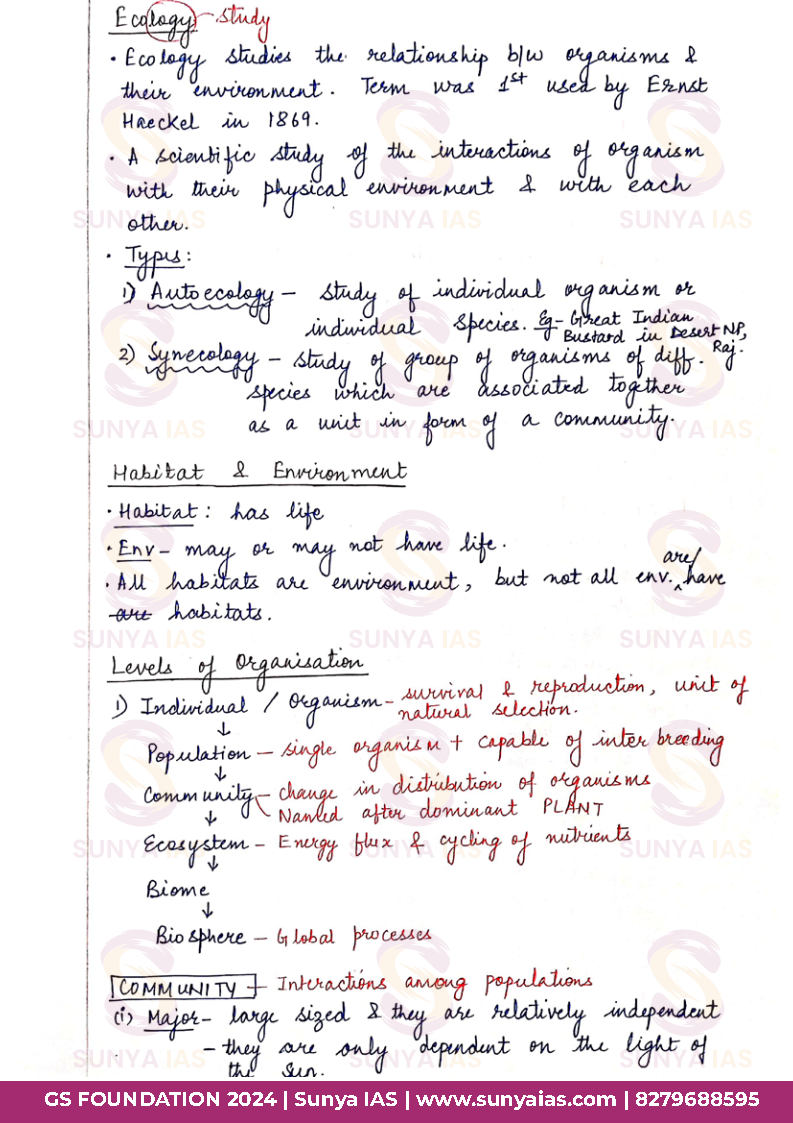 Ecology - study
• Ecology studies the relationship b/w organisms &
their environment. Term was 1st used by Ernst
Haeckel in 1869.
• A scientific study of the interactions of organism
with their physical environment & with each
other.
• Types:
1) Autoecology - study of individual organism or
individual species. Eg - Great Indian
Bustard in Desert NP, Raj.
2) Synecology - study of group of organisms of diff.
species which are associated together
as a unit in form of a community.
Habitat & Environment
• Habitat: has life
• Env - may or may not have life.
• All habitats are environment, but not all env. are/have
are habitats.
Levels of Organisation
1) Individual / Organism - survival & reproduction, unit of
natural selection.
↓
Population - single organism + capable of inter breeding
↓
Community - change in distribution of organisms
Named after dominant PLANT
↓
Ecosystem - Energy flux & cycling of nutrients
↓
Biome
↓
Biosphere - Global processes
COMMUNITY - Interactions among populations
(i) Major - large sized & they are relatively independent
- they are only dependent on the light of
the sun.
GS FOUNDATION 2024 | Sunya IAS | www.sunyaias.com | 8279688595
SUNYA IAS